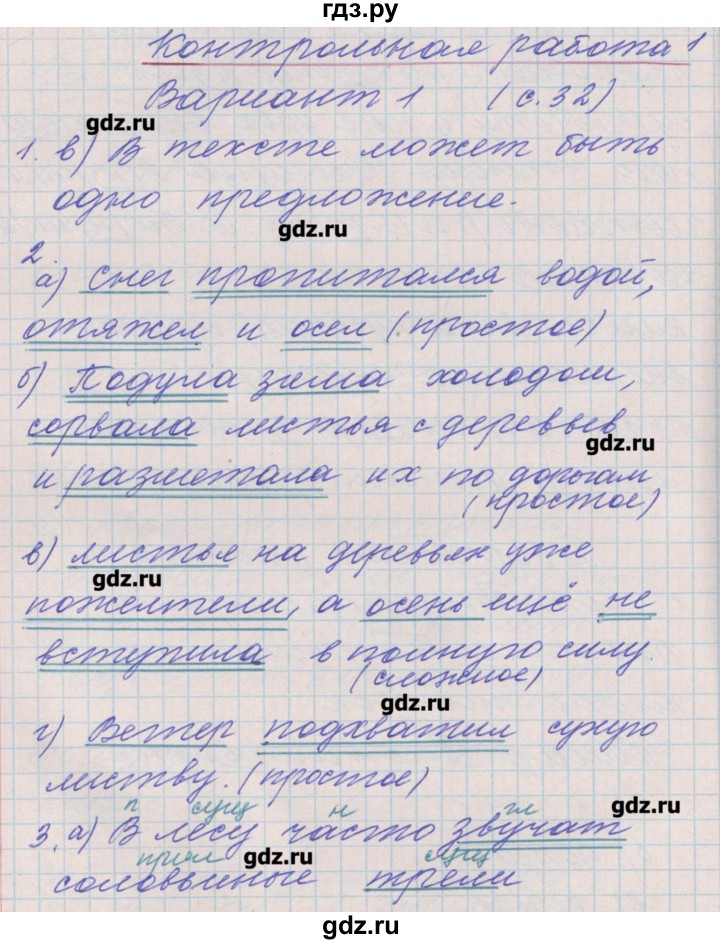 гдз.ру
Контрольная работа 1
Вариант 1 (с. 32)
gdz.ru
1. в) В тексте может быть
одно предложение.
gdz.ru
2.
а) Снег пропитался водой,
отяжел и осел (простое)
б) Подула зима холодом,
сорвала листья с деревьев
gdz.ru
и разметала их по дорогам
(простое)
в) листья на деревьях уже
gdz.ru
пожелтели, а осень ещё не
вступила в полную силу.
(сложное)
gdz.ru
г) Ветер подхватил сухую
листву. (простое)
п сущ н гл
gdz.ru
3. а) В лесу часто звучат
прил сущ
gdz.ru
соловьиные трели
gdz.ru